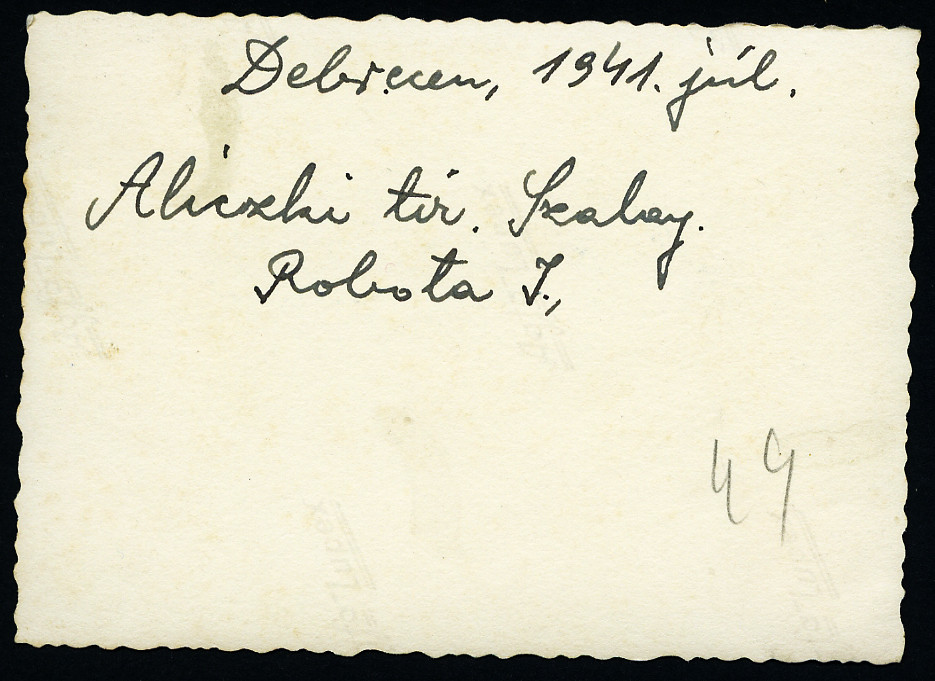 Debrecen, 1941. júl.
Aliczki tir. Szabay.
Robota J.,
49